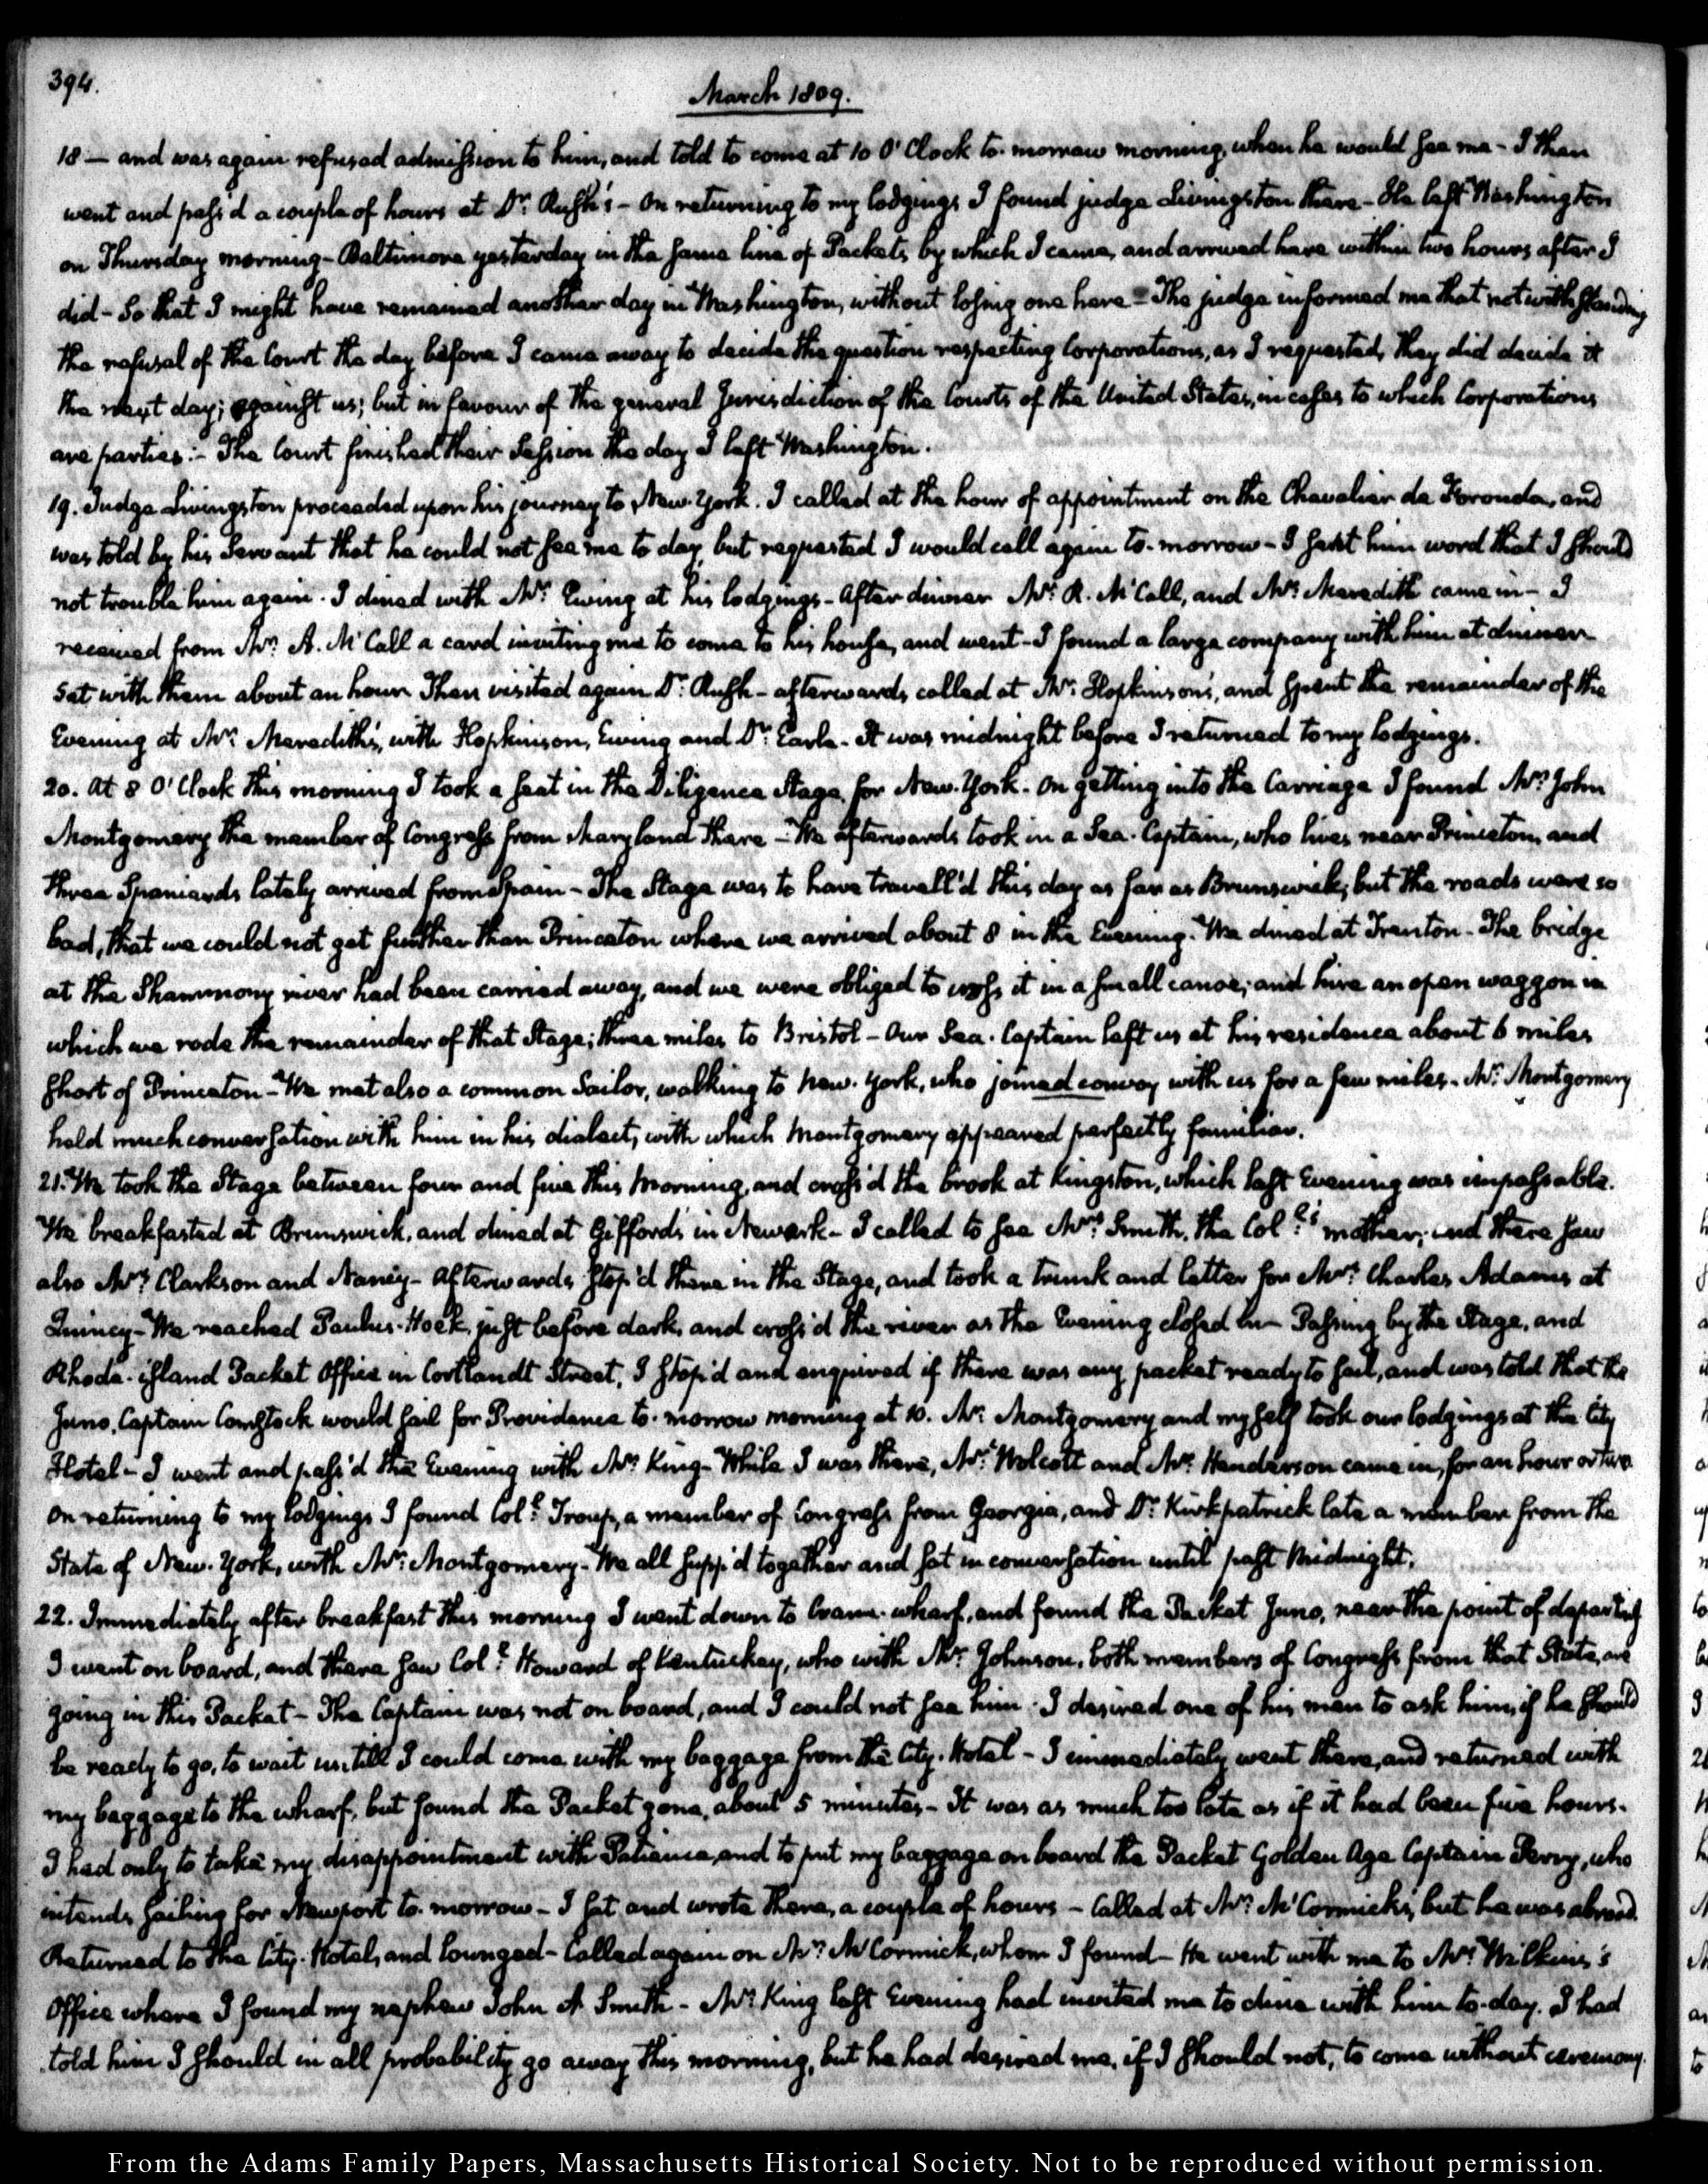 394.
March 1809.
18 — and was again refused admission to him, and told to come at 10 O'Clock to-morrow morning, when he would see me - I then
went and pass'd a couple of hours at Dr. Rush's - On returning to my lodgings I found judge Livingston there - He left Washington
on Thursday morning - Baltimore yesterday in the same line of Packets by which I came, and arrived here within two hours after I
did - So that I might have remained another day in Washington, without losing one here - The judge informed me that notwithstanding
the refusal of the Court the day before I came away to decide the question respecting Corporations, as I requested, they did decide it
the next day; against us; but in favour of the general Jurisdiction of the Courts of the United States, in cases to which Corporations
are parties:- The Court finished their Session the day I left Washington.
19. Judge Livingston proceeded upon his journey to New-York. I called at the hour of appointment on the Chevalier de Foronda, and
was told by his Servant that he could not see me to day, but requested I would call again to-morrow - I sent him word that I should
not trouble him again. I dined with Mr. Ewing at his lodgings - After dinner Mr. R. McCall, and Mr. Meredith came in - I
received from Mr. A. McCall a card inviting me to come to his house, and went - I found a large company with him at dinner
Sat with them about an hour Then visited again Dr. Rush - afterwards called at Mr. Hopkinson's, and spent the remainder of the
Evening at Mr. Meredith's, with Hopkinson, Ewing and Dr. Earle. It was midnight before I returned to my lodgings.
20. At 8 O'Clock this morning I took a seat in the Diligence Stage, for New-York. On getting into the Carriage I found Mr. John
Montgomery the member of Congress from Maryland there - We afterwards took in a Sea-Captain, who lives near Princeton, and
three Spaniards lately arrived from Spain - The Stage was to have travell'd this day as far as Brunswick; but the roads were so
bad, that we could not get further than Princeton where we arrived about 8 in the Evening. We dined at Trenton - The bridge
at the Shammony river had been carried away, and we were obliged to cross it in a small canoe; and hire an open waggon in
which we rode the remainder of that Stage; three miles to Bristol - Our Sea-Captain left us at his residence about 6 miles
short of Princeton - We met also a common Sailor, walking to New-York, who joined convoy with us for a few miles. Mr. Montgomery
held much conversation with him in his dialect, with which Montgomery appeared perfectly familiar.
21. We took the Stage between four and five this morning, and cross'd the brook at Kingston, which last Evening was impassable.
We breakfasted at Brunswick, and dined at Gifford's in Newark - I called to see Mrs. Smith, the Coll's mother; and there saw
also Mrs. Clarkson and Nancy - Afterwards stop'd there in the Stage, and took a trunk and letter for Mrs. Charles Adams at
Quincy - We reached Paulus-Hoek, just before dark, and cross'd the river as the Evening closed in - Passing by the Stage, and
Rhode-island Packet Office in Cortlandt Street, I stop'd and enquired if there was any packet ready to sail, and was told that the
Juno, Captain Comstock would sail for Providence to-morrow morning at 10. Mr. Montgomery and myself took our lodgings at the City
Hotel - I went and pass'd the Evening with Mr. King - While I was there, Mr. Wolcott and Mr. Henderson came in, for an hour or two
On returning to my lodgings I found Coll. Troup, a member of Congress from Georgia, and Dr. Kirkpatrick late a member from the
State of New-York, with Mr. Montgomery - We all supp'd together and sat in conversation until past Midnight.
22. Immediately after breakfast this morning I went down to Crane-wharf, and found the Packet Juno, near the point of departing
I went on board, and there saw Coll. Howard of Kentuckey, who with Mr. Johnson, both members of Congress from that State, are
going in this Packet - The Captain was not on board, and I could not see him. I desired one of his men to ask him, if he should
be ready to go, to wait untill I could come with my baggage from the City-Hotel - I immediately went there, and returned with
my baggage to the wharf, but found the Packet gone, about 5 minutes - It was as much too late as if it had been five hours.
I had only to take my disappointment with Patience, and to put my baggage on board the Packet Golden Age Captain Perry, who
intends sailing for Newport to-morrow - I sat and wrote there, a couple of hours - Called at Mr. McCormick's, but he was abroad.
Returned to the City-Hotel, and lounged - Called again on Mr. McCormick, whom I found - He went with me to Mr. Wilkins's
Office where I found my nephew John A Smith - Mr. King last Evening had invited me to dine with him to-day. I had
told him I should in all probability go away this morning, but he had desired me, if I should not, to come without ceremony.
From the Adams Family Papers, Massachusetts Historical Society. Not to be reproduced without permission.